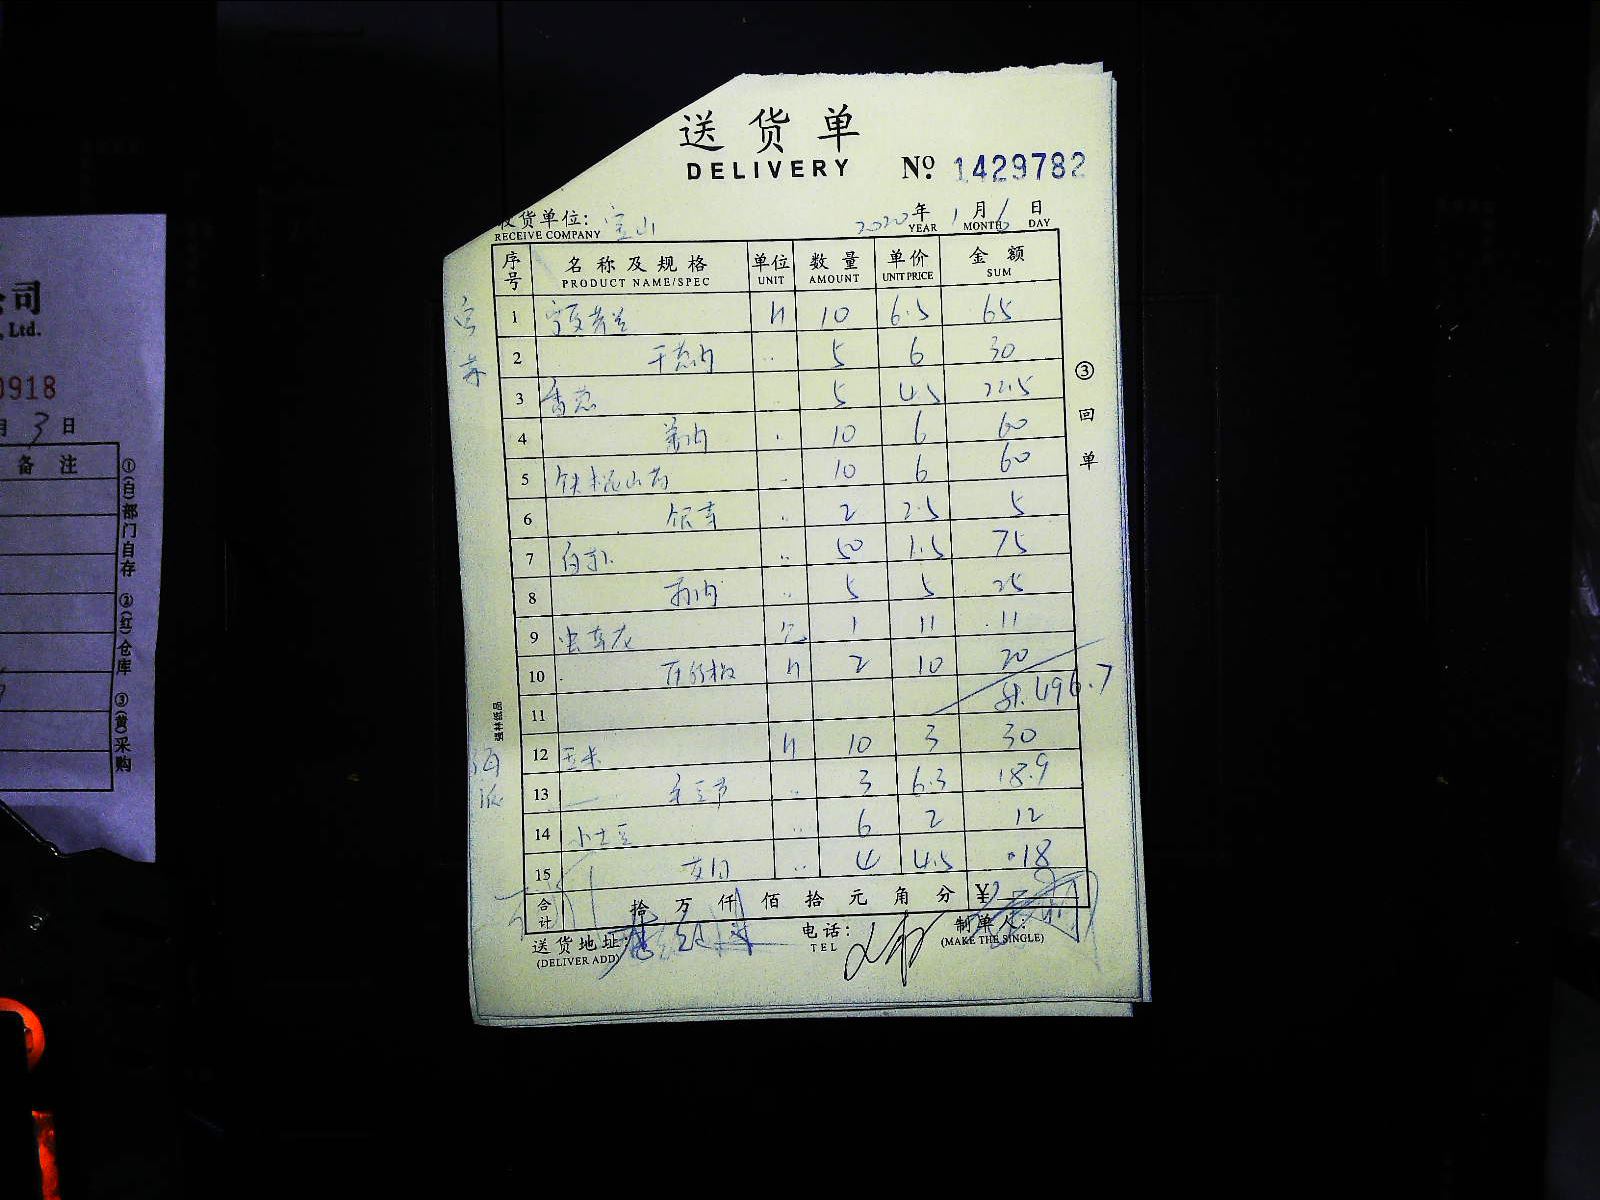 送货单
DELIVERY
№ 1429782
收货单位: 宝山
RECEIVE COMPANY
2020年 1月6日
YEAR MONTH DAY
序号 名称及规格 单位 数量 单价 金额
PRODUCT NAME/SPEC UNIT AMOUNT UNIT PRICE SUM
1 10 6.5 65
2 干葱肉 5 6 30
3 香葱 5 4.5 22.5
4 10 6 60
5 铁棍山药 10 6 60
6 2 2.5 5
7 50 1.5 75
8 5 5 25
9 虫草花 1 11 11
10 2 10 20
11 496.7
12 玉米 10 3 30
13 3 6.3 18.9
14 小土豆 6 2 12
15 4 4.5 18
合计 拾 万 仟 佰 拾 元 角 分 ¥
送货地址:
(DELIVER ADD)
电话:
TEL
制单人:
(MAKE THE SINGLE)
③回单
强林纸品
公司
, Ltd.
0918
月 3 日
备注
①(白)部门自存 ②(红)仓库 ③(黄)采购